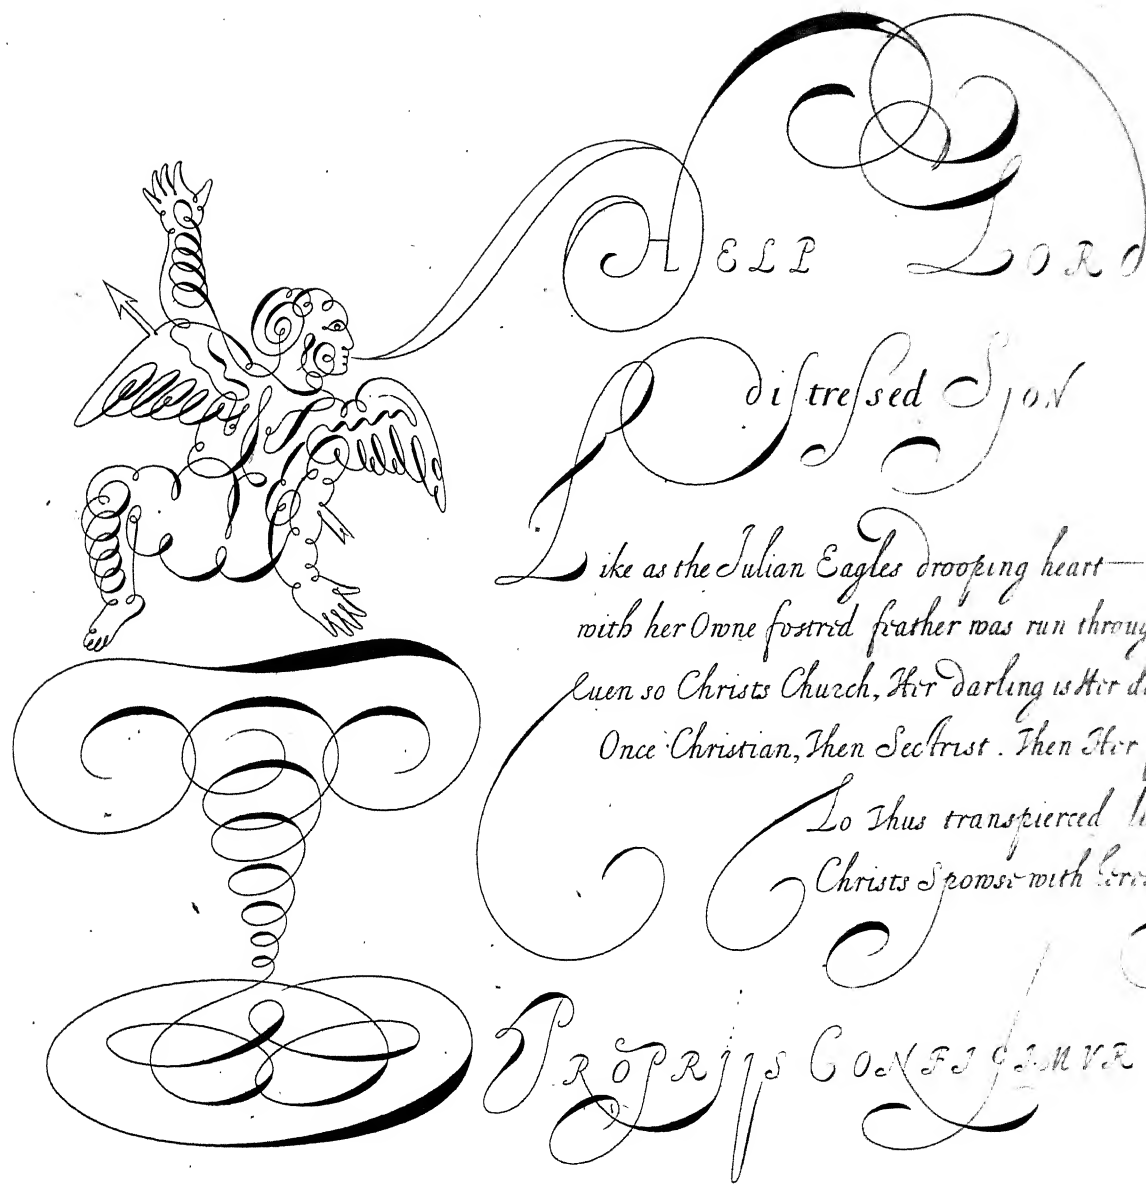 HELP LORD
distressed SION
Like as the Julian Eagles drooping heart
with her Owne fostred feather was run throug
Euen so Christs Church, Her darling is Her
Once Christian, Then Sectrist. Then Her
Lo Thus transpierced
Christs Spowse with
PROPRIJS CONFIGIMVR